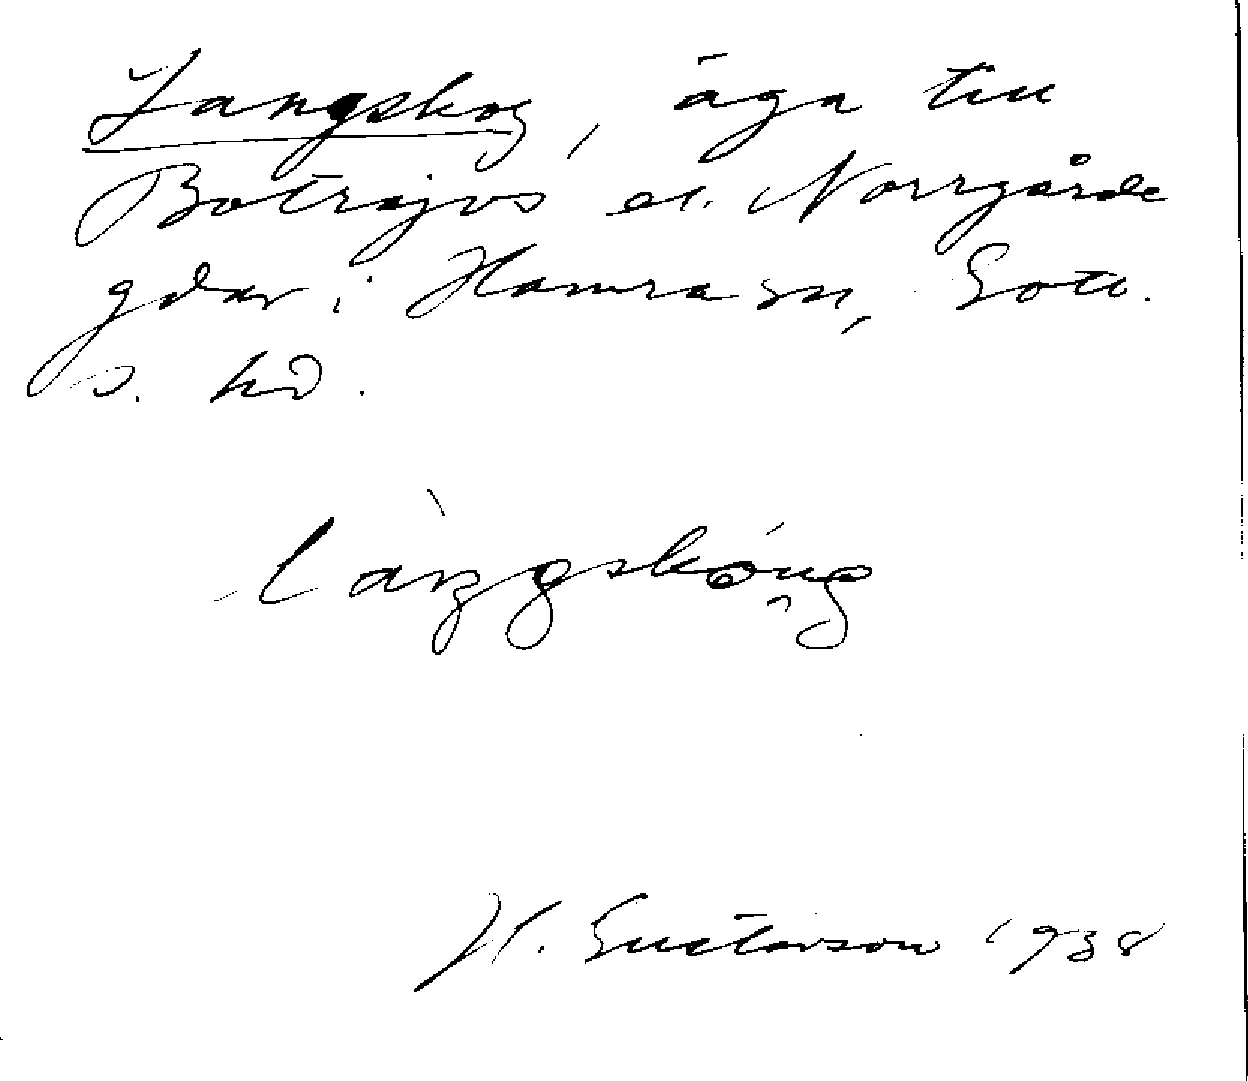 Langskog, äga till
Botrajvs el. Norrgårde
gdar i Hamra sn, Gotl.
s. hd.
H. Gustavson 1938